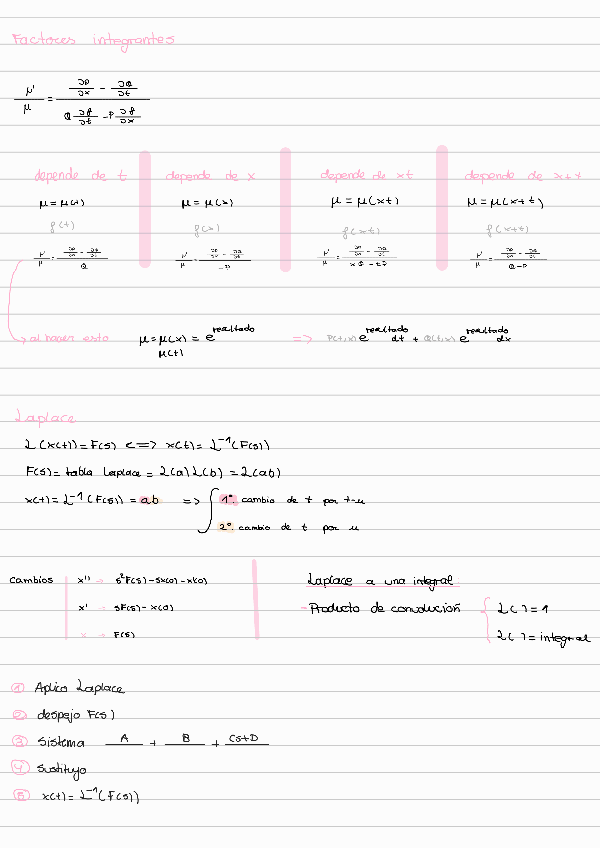 Factores integrantes
μ'/μ = (∂P/∂x - ∂Q/∂t) / (Q ∂f/∂t - P ∂f/∂x)
depende de t depende de x depende de xt depende de x+t
μ = μ(t) μ = μ(x) μ = μ(xt) μ = μ(x+t)
f(t) f(x) f(xt) f(x+t)
μ'/μ = (∂P/∂x - ∂Q/∂t) / Q μ'/μ = (∂P/∂x - ∂Q/∂t) / -P μ'/μ = (∂P/∂x - ∂Q/∂t) / (xQ - tP) μ'/μ = (∂P/∂x - ∂Q/∂t) / (Q-P)
al hacer esto μ = μ(x) = e^resultado => P(t,x) e^resultado dt + Q(t,x) e^resultado dx
μ(t)
Laplace
L(x(t)) = F(s) <=> x(t) = L^-1(F(s))
F(s) = tabla Laplace = L(a) L(b) = L(ab)
x(t) = L^-1(F(s)) = ab => ∫ 1º. cambio de t por t-u
2º. cambio de t por u
Cambios x'' → s²F(s) - sx(0) - x'(0) Laplace a una integral:
x' → sF(s) - x(0) - Producto de convolución { L( ) = 1
x → F(s) L( ) = integral
① Aplico Laplace
② despejo F(s)
③ Sistema A/ + B/ + Cs+D/
④ Sustituyo
⑤ x(t) = L^-1(F(s))